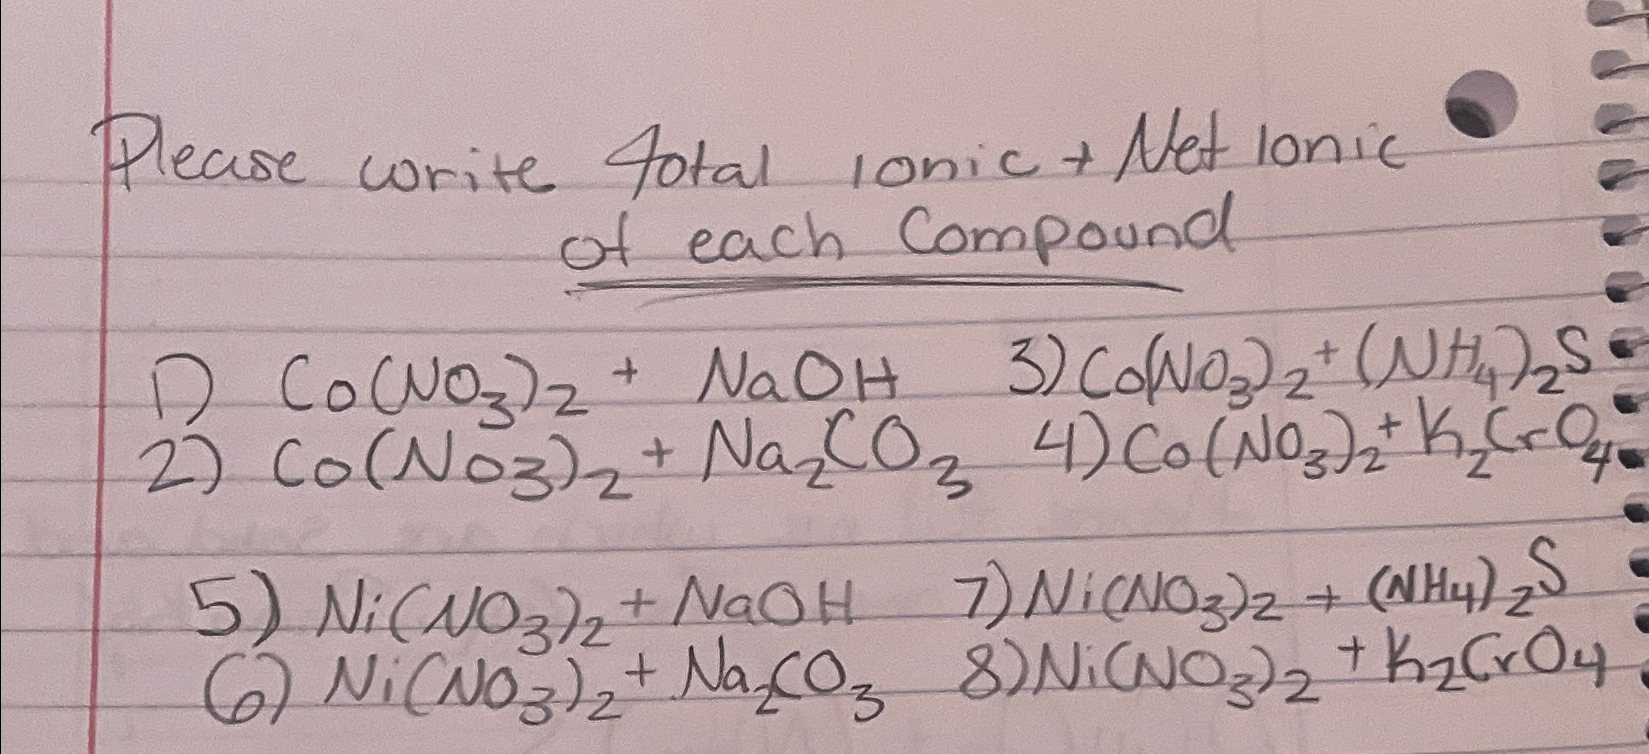 Please write total ionic + Net Ionic
of each Compound
1) Co(NO3)2 + NaOH 3) Co(NO3)2 + (NH4)2S
2) Co(NO3)2 + Na2CO3 4) Co(NO3)2 + K2CrO4
5) Ni(NO3)2 + NaOH 7) Ni(NO3)2 + (NH4)2S
6) Ni(NO3)2 + Na2CO3 8) Ni(NO3)2 + K2CrO4